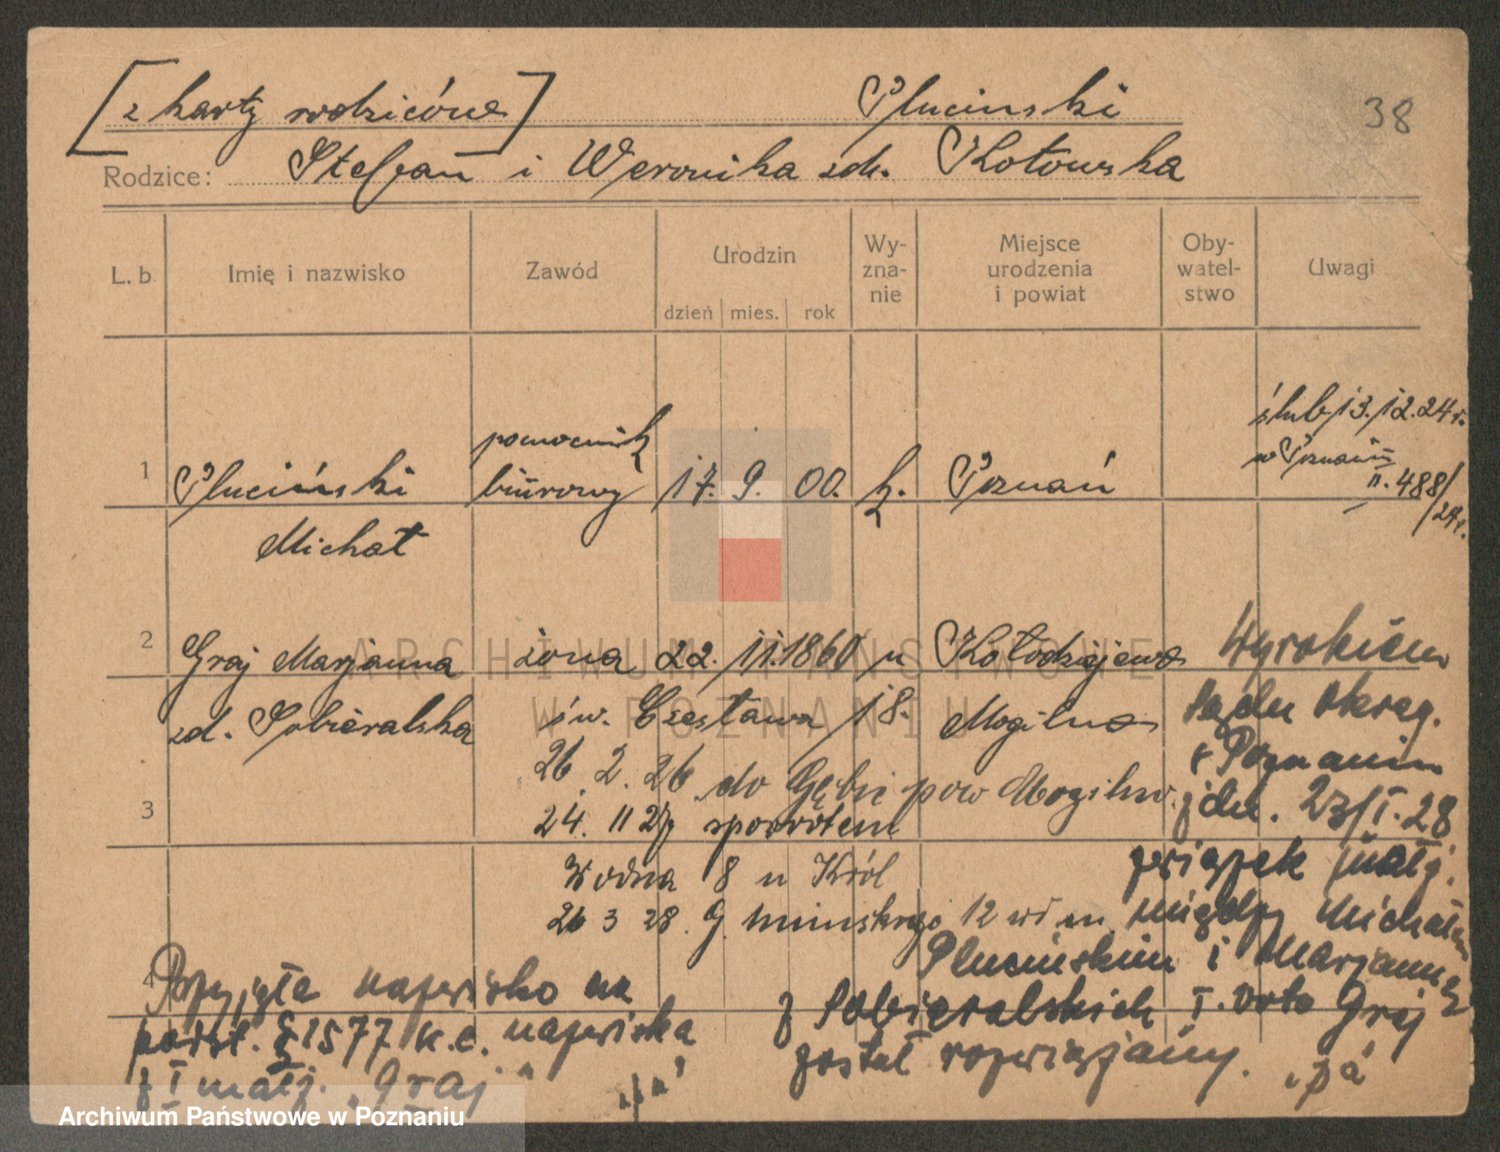 [z karty rodziców] Plucinski 38
Rodzice: Stefan i Weronika zd. Kotowska
L. b. Imię i nazwisko Zawód Urodzin Wy-zna-nie Miejsce urodzenia i powiat Oby-watel-stwo Uwagi
dzień mies. rok
ślub 13.12.24 r.
1 Pluciński pomocnik biurowy 17. 9. 00. k. Poznań w Poznaniu
II. 488/24 r.
Michał
2 Graj Marjanna żona 22. 11. 1860 n Kołodziejewo
zd. Sobieralska św. Czesława 18. Mogilno
26. 2. 26 do Gębic pow Mogilno
3 24. 11 27 spowrotem
Wodna 8 u Król
26 3 28. G. 12 m.
Wyrokiem
sądu okręg.
w Poznaniu
z dn. 23/I. 28
związek małż.
między Michałem
Plucinskim i Marjanną
z Sobieralskich I. voto Graj
został rozwiązany. "pa"
4 Przyjęła nazwisko na
podst. § 1577 k.c. nazwiska
z I małż. "Graj"
ARCHIWUM PAŃSTWOWE
W POZNANIU
Archiwum Państwowe w Poznaniu